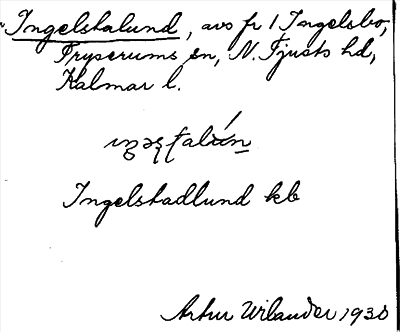 Ingelstalund, avs fr 1 Ingelsbo,
Fryserums sn, N. Tjusts hd,
Kalmar l.
Ingelstadlund kb
Artur Wilander 1930